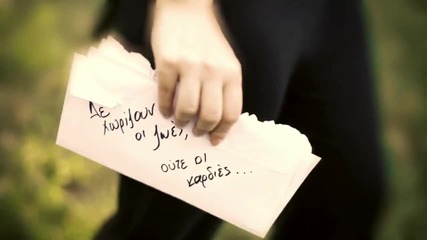 Δε
χωρίζουν
οι ζωές,
ούτε οι
καρδιές...